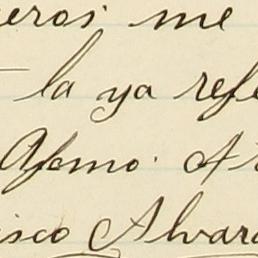 eros me
la ya refe
Afmo. A
isco Alvar